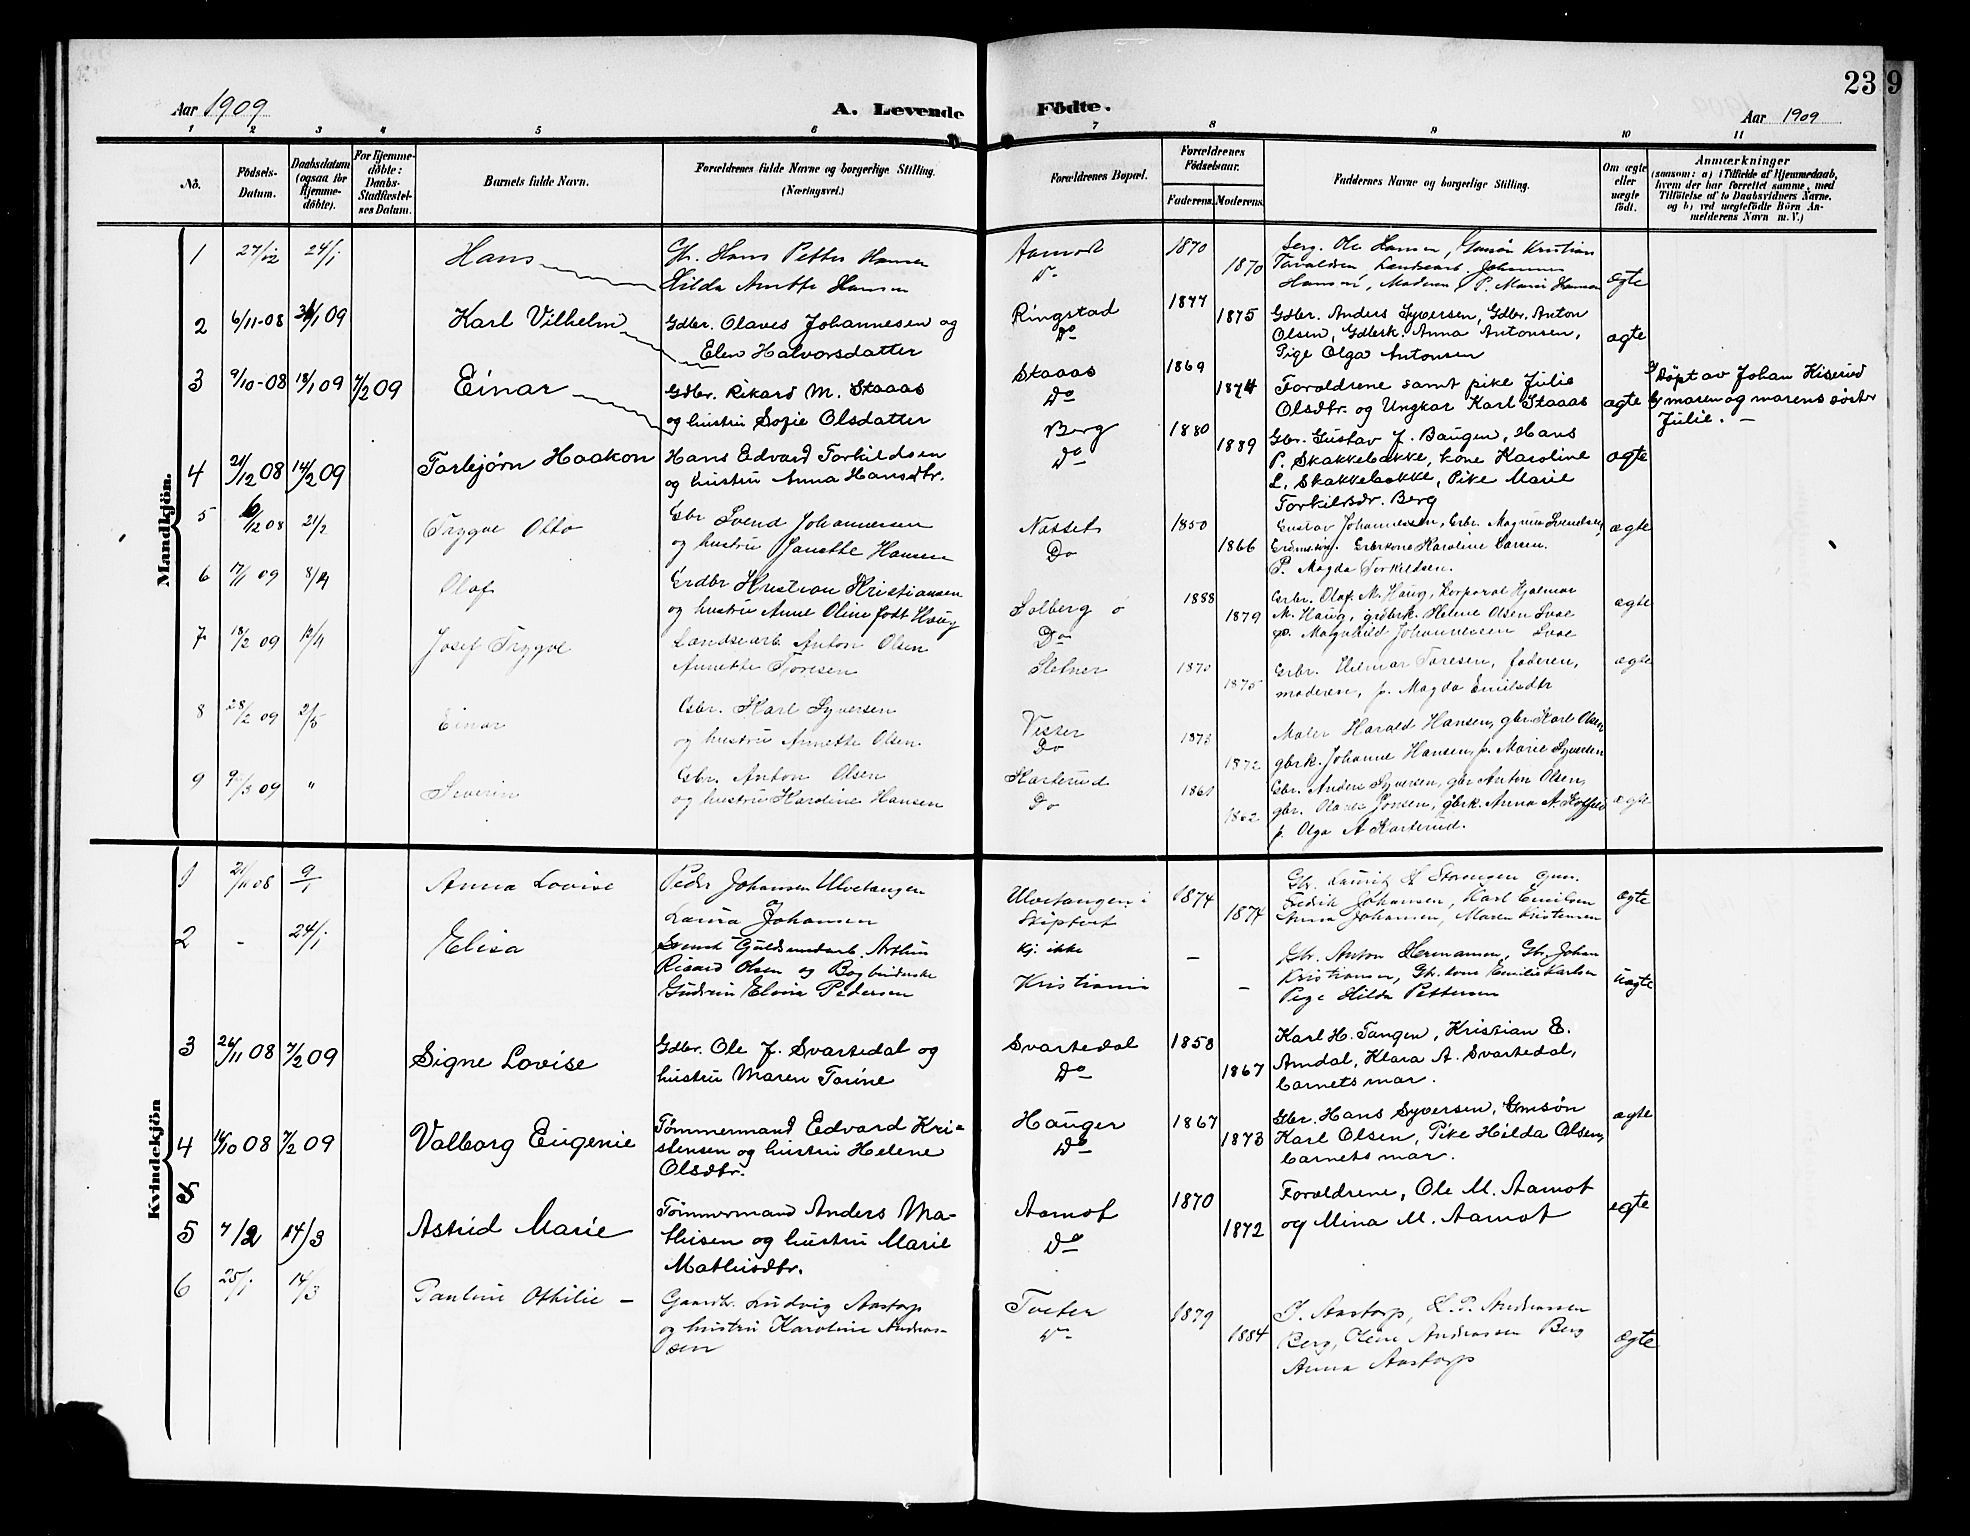 23
9
Aar 1909
A. Levende Födte.
Aar 1909
1 2 3 4 5 6 7 8 9 10 11
No.
Födsels-
Datum.
Daabsdatum
(ogsaa for
Hjemme-
döbte).
For Hjemme-
döbte:
Daabs-
Stadfæstel-
ses Datum.
Barnets fulde Navn.
Forældrenes fulde Navne og borgerlige Stilling.
(Næringsvei.)
Forældrenes Bopæl.
Forældrenes
Födselsaar.
Faderens.
Moderens.
Faddernes Navne og borgerlige Stilling.
Om ægte
eller
uægte
født.
Anmærkninger
(saasom: a) i Tilfælde af Hjemmedaab,
hvem der har forrettet samme, med
Tilföielse af to Daabsvidners Navne.
og b) ved uægtefödte Börn An-
melderens Navn m. V.)
Mandkjön.
1 27/12 24/1 Hans
Gbr. Hans Petter Hansen
Hilda Anette Hansen
Aamodt
Do
1870
1870
Hansen, Moderen, P. Marie Hansen
ægte
2 6/11-08 09 Karl Vilhelm
Gdbr. Olaves Johannesen og
Elen Halvorsdatter
Ringstad
Do
1877
1875
Gdbr. Anders Syversen, Gdbr. Anton
Olsen, Gdbrk. Anna Antonsen,
Pige Olga Antonsen
ægte
3 9/10-08 18/1 09 7/2 09 Einar
Gdbr. Rikard M. Staaas
og hustru Sofie Olsdatter
Staaas
Do
1869
1874
Forældrene samt pike Julie
Olsdtr. og Ungkar Karl Staaas
ægte
Døpt av Johan Hiserud
maren og marens søster
Julie. —
4 21/12 08 14/2 09 Torbjørn Haakon
Hans Edvard Torkildsen
og hustru Anna Hansdtr.
Berg
Do
1880
1889
Gbr. Gustav J. Baugen, Hans
P. Skakkebakke, kone Karoline
L. Skakkebakke, Pike Marie
Torkilsdr. Berg
ægte
5 6/12 08 21/2 Trygve Otto
Gbr Svend Johannessen
og hustru Janette Hansen
Næsset
Do
1850
1866
Gustav Johannessen, Grbr. Magnus Svendsen,
Grbrkone Karoline Larsen.
P. Magda Torkildsen.
ægte
6 17/1 09 8/4 Olaf
Grdbr Kristian Kristiansen
og hustru Anne Oline født Haug
Solberg ø
Do
1888
1879
Grbr. Olaf M. Haug, Korporal Hjalmar
M. Haug, grdbrk. Helene Olsen Svae
Johannessen Svae
ægte
7 18/2 09 13/4 Josef Trygve
Landsearb Anton Olsen
Annette Toresen
Sletner
1870
1875
Grbr. Hilmar Toresen, faderen,
moderen, p. Magda Emilsdtr
ægte
8 28/2 09 2/5 Einar
Gbr. Karl Syversen
og hustru Annette Olsen.
Vister
Do
1873
1872
Maler Harald Hansen, gbr Karl Olsen
gbrk. Johanne Hansen, p. Marie Syversen
9 3 09 " Severin
Gbr. Anton Olsen
og hustru Karoline Hansen
Karterud
Do
1861
1862
Gbr. Anders Syversen, gbr Anton Olsen,
gbr. Olaves Jonsen, gbrk. Anna A.
p. Olga A Karterud.
ægte
Kvindekjön
1 21/11 08 9/1 Anna Lovise
Peder Johansen Ulvetangen
og
Laura Johansen
Ulvetangen i
Skiptvet
1874
1874
Gbr. Laurits A Sørensen
Fredrik Johansen, Karl Emilsen
Anna Johansen, Maren Kristensen
ægte
2 - 24/1 Elisa
Svensk Guldsmedarb. Arthur
Ricard Olsen og Bogbinderske
Gudrun Elvira Pedersen
kj. ikke
Kristiania
—
—
Gbr. Anton Hermansen, Gbr. Johan
Kristiansen, Gbr. kone Emilie Karlsen
Pige Hilda Pettersen
uægte
3 26/11 08 7/2 09 Signe Lovise
Gdbr. Ole J. Svartedal og
hustru Maren Torine
Svartedal
Do
1858
1867
Karl H. Tangen, Kristian E.
Amdal, Klara A. Svartedal,
barnets mor.
4 16/10 08 7/2 09 Valborg Eugenie
Tømmermand Edvard Kri-
stensen og hustru Helene
Olsdtr.
Hauger
Do
1867
1873
Gbr. Hans Syversen, Gmsøn
Karl Olsen, Pike Hilda Olsen,
barnets mor.
ægte
5 7/2 14/3 Astrid Marie
Tømmermand Anders Ma-
thisen og hustru Marie
Mathisdtr.
Aamot
Do
1870
1872
Forældrene, Ole M. Aamot
og Mina M. Aamot
ægte
6 25/1 14/3 Pauline Othilie —
Gaardbr. Ludvig Aastorp
og hustru Karoline Andreas-
sen
Tveter
Do
1879
1884
J. Aastorp, H. P. Andreassen
Berg, Oline Andreassen Berg
Anna Aastorp
ægte